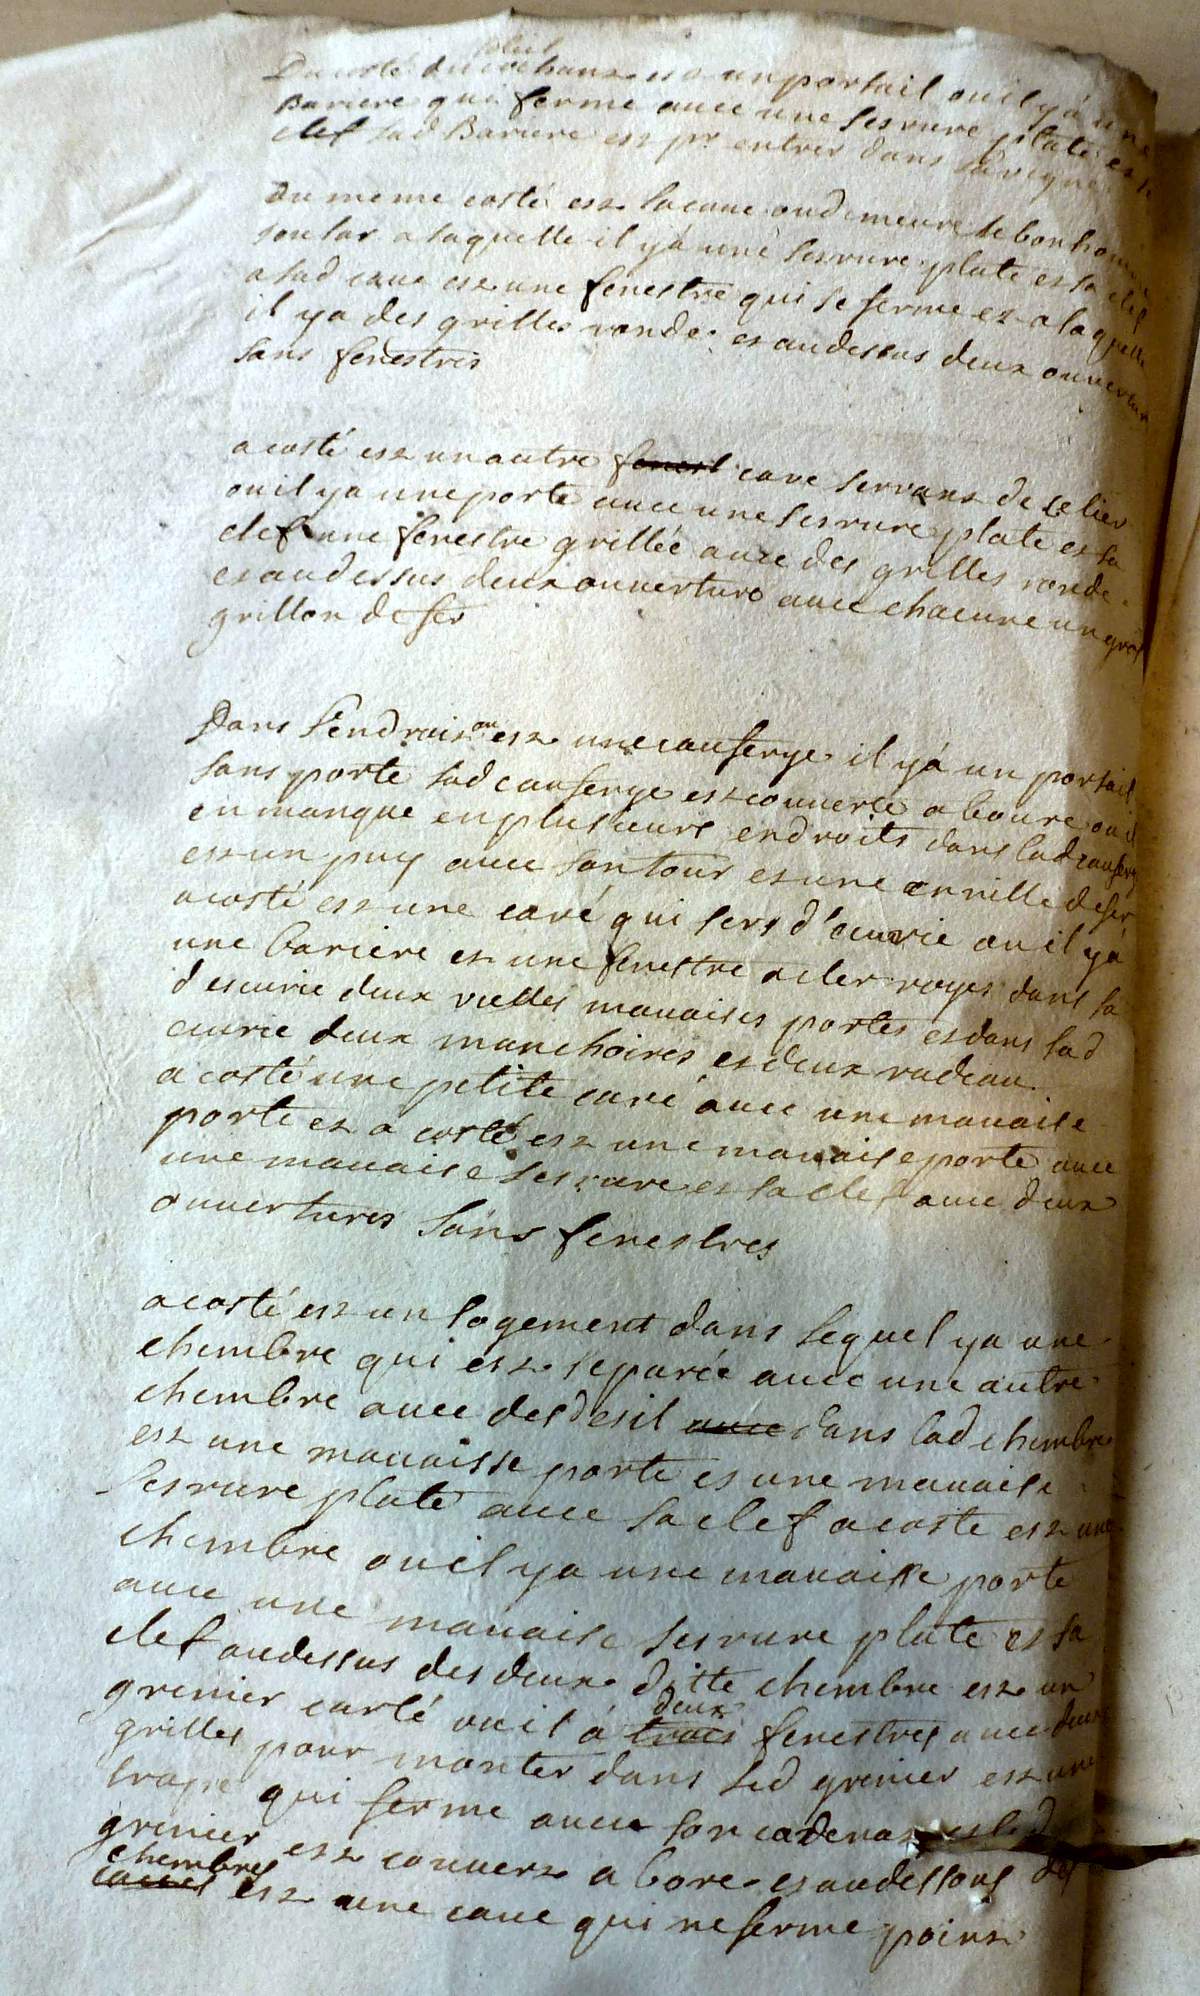 Du costé du couchant est un portail ou il y á une
Bariere qui ferme avec une serrure plate et sa
clef lad Bariere est pr entrer dans la vigne
Du meme costé est la cave ou demeure le bonhome
a laquelle il y á une serrure plate et sa clef
a lad cave est une fenestre qui se ferme et a laquelle
il y a des grilles ronde et au dessus deux ouvertur
sans fenestres
a costé est un autre fenest cave servant de celier
ou il y a une porte avec une serrure plate et sa
clef une fenestre grillée avec des grilles ronde
et au dessus deux ouverture avec chacune un gros
grillon de fer
Dans l'endroit ou est une causerge il y á un portail
sans porte lad causerge est couverte a boure ou il
en manque en plusieurs endroits dans lad causerge
est un puy avec son tour et une anville de fer
a costé est une cave qui sers d'ecurie ou il y á
une bariere et une fenestre a cler voyes dans la
d escurie deux vielles mauaises portes et dans lad
ecurie deux manchoires et deux radeau
a costé une petite cave avec une mauaise
porte et a costé est une mauaise porte avec
une mauaise serrure et sa clef avec deux
ouvertures sans fenestres
a costé est un logement dans lequel y a une
chembre qui est separée avec une autre
chembre avec des desil avec dans lad chembre
est une mauaisse porte et une mauaise
serrure plate avec sa clef a coste est une
chembre ou il y a une mauaisse porte
avec une mauaise serrure plate et sa
clef au dessus des deux ditte chembre est un
grenier carlé ou il á trois deux fenestres avec deux
grilles pour monter dans led grenier est une
trape qui ferme avec son cadenat et led
grenier est couvert a bore et au dessous des
caves chembres est une cave qui ne ferme point